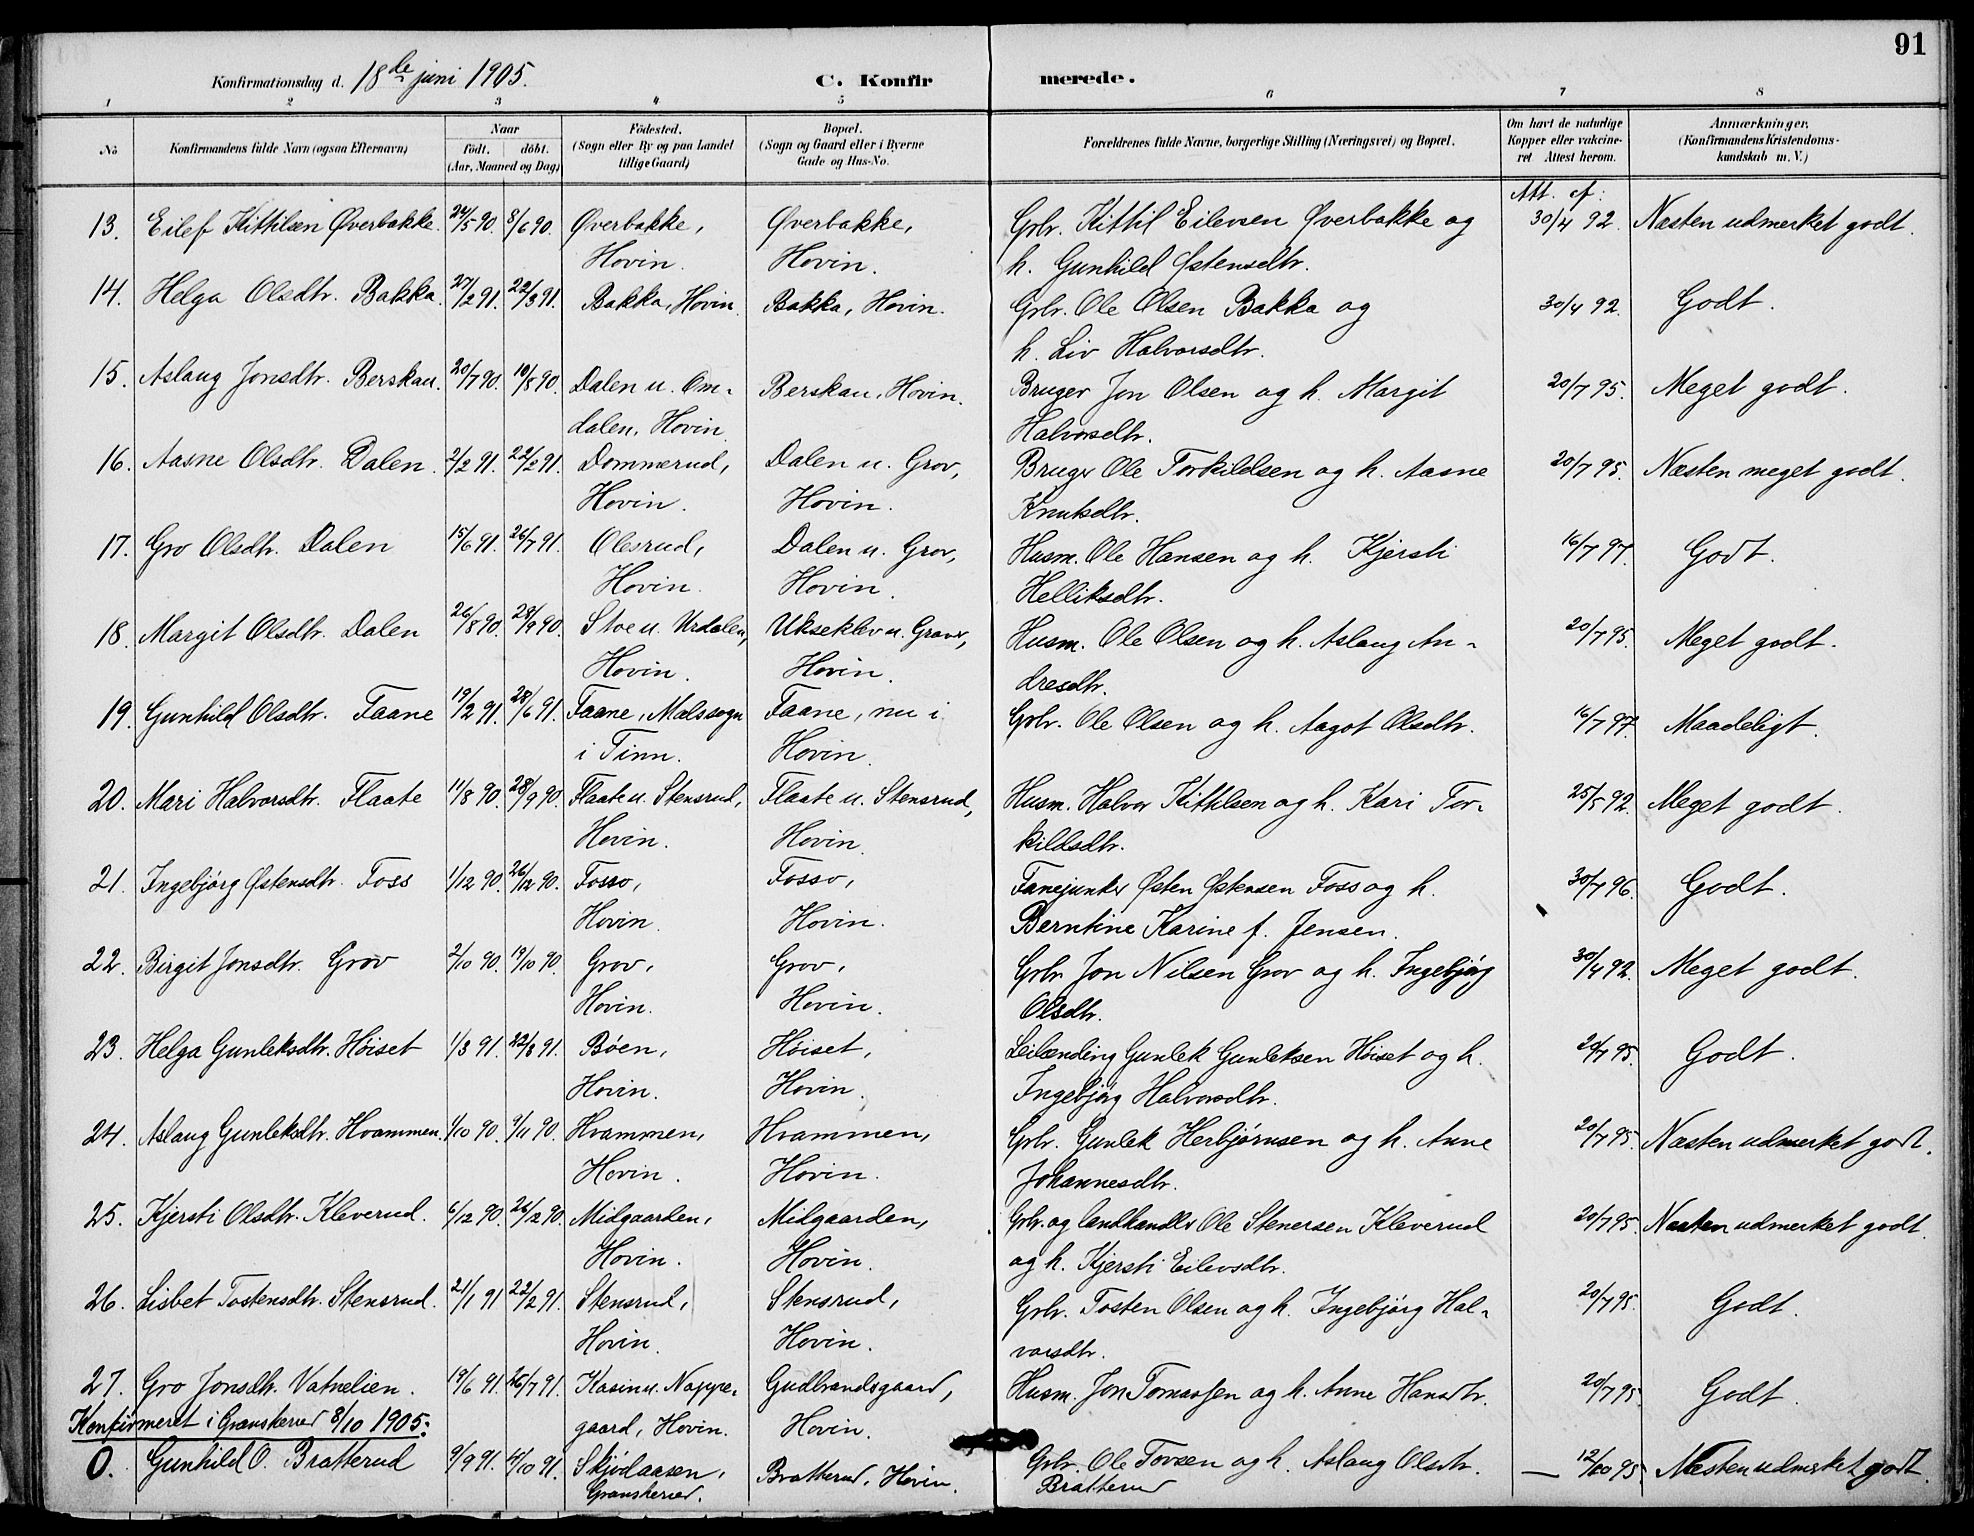 91
Konfirmationsdag d. 18de juni 1905.
C. Konfirmerede.
1 2 3 4 5 6 7 8
No
Konfirmandens fulde Navn (ogsaa Efternavn)
Naar
født. døbt.
(Aar, Maaned og Dag)
Fødested.
(Sogn eller By og paa Landet
tillige Gaard)
Bopæl.
(Sogn og Gaard eller i Byerne
Gade og Hus-No.
Forældrenes fulde Navne, borgerlige Stilling (Næringsvei) og Bopæl.
Om havt de naturlige
Kopper eller vakcine-
ret Attest herom.
Anmærkninger.
(Konfirmandens Kristendoms-
kundskab m. V.)
Att. af:
13. Eilef Kittilsen Øverbakke. 24/5 90. 8/6 90. Øverbakke, Øverbakke, Gbr. Kittil Eilevsen Øverbakke og 30/4 92. Næsten udmerket godt.
Hovin. Hovin. h. Gunhild Østensdtr.
14. Helga Olsdtr. Bakka. 27/2 91. 22/3 91. Bakka, Hovin. Bakka, Hovin. Gbr. Ole Olsen Bakka og 30/4 92. Godt.
h. Liv Halvorsdtr.
15. Aslaug Jonsdtr. Berskau. 20/7 90. 10/8 90. Dalen u. Om- Berskau, Hovin. Bruger Jon Olsen og h. Margit 20/7 95. Meget godt.
dalen, Hovin. Halvorsdtr.
16. Aasne Olsdtr. Dalen. 2/2 91. 22/2 91. Dommerud, Dalen u. Grov, Bruger Ole Torkildsen og h. Aasne 20/7 95. Næsten meget godt.
Hovin. Hovin. Knutsdtr.
17. Gro Olsdtr. Dalen 15/6 91. 26/7 91. Olesrud, Dalen u. Grov, Husm. Ole Hansen og h. Kjersti 16/7 97. Godt.
Hovin. Hovin. Helliksdtr.
18. Margit Olsdtr. Dalen 26/8 90. 28/9 90. Stoe u. Urdalen, Ukseklev u. Graver, Husm. Ole Olsen og h. Aslaug An- 20/7 95. Meget godt.
Hovin. Hovin. dresdtr.
19. Gunhild Olsdtr. Faane 19/2 91. 28/6 91. Faane, Mælssogn Faane, nu i Gbr. Ole Olsen og h. Aagot Olsdtr. 16/7 97. Maadeligt.
i Tinn. Hovin.
20. Mari Halvorsdtr. Flaate 11/8 90. 28/9 90. Flaate u. Stensrud, Flaate u. Stensrud, Husm. Halvor Kittilsen og h. Kari Tor- 25/5 92. Meget godt.
Hovin. Hovin. kildsdtr.
21. Ingebjørg Østensdtr. Foss 1/12 90. 26/12 90. Fosso, Fosso, Fanejunker Østen Østensen Foss og h. 30/7 96. Godt.
Hovin. Hovin. Berntine Karine f. Jensen.
22. Birgit Jonsdtr. Grov 2/10 90. 19/10 90. Grov, Grov, Gbr. Jon Nilsen Grov og h. Ingebjørg 30/4 92. Meget godt.
Hovin. Hovin. Olsdtr.
23. Helga Gunleksdtr. Høiset 1/3 91. 22/3 91. Bøen, Høiset, Leilænding Gunlek Gunleksen Høiset og h. 20/7 95. Godt.
Hovin. Hovin. Ingebjørg Halvorsdtr.
24. Aslaug Gunleksdtr. Hvammen. 1/10 90. 9/11 90. Hvammen, Hvammen, Gbr. Gunlek Herbjørnsen og h. Anne 20/7 95. Næsten udmerket godt.
Hovin. Hovin. Johannesdtr.
25. Kjersti Olsdtr. Kleverud. 6/12 90. 26/12 90. Midgaarden, Midgaarden, Gbr. og landhandler Ole Stenersen Kleverud 20/7 95. Næsten udmerket godt.
Hovin. Hovin. og h. Kjersti Eilevsdtr.
26. Lisbet Tostensdtr. Stensrud. 21/1 91 22/2 91. Stensrud, Stensrud, Gbr. Tosten Olsen og h. Ingebjørg Hal- 20/7 95. Godt.
Hovin. Hovin. vorsdtr.
27. Gro Jonsdtr. Vatnelien. 19/6 91. 26/7 91. Kasin u. Nappe- Gudbrandsgaard, Husm. Jon Tomassen og h. Anne Hansdtr. 20/7 95. Godt.
gaard, Hovin. Hovin.
Konfirmeret i Gransherred 8/10 1905:
0. Gunhild O. Bratterud 9/9 91. 10/91. Skjødaasen, Bratterud, Hovin. Gbr. Ole Torsen og h. Aslaug Olsdtr. — 12/10 95 Næsten udmerket godt.
Gransherred. Bratterud